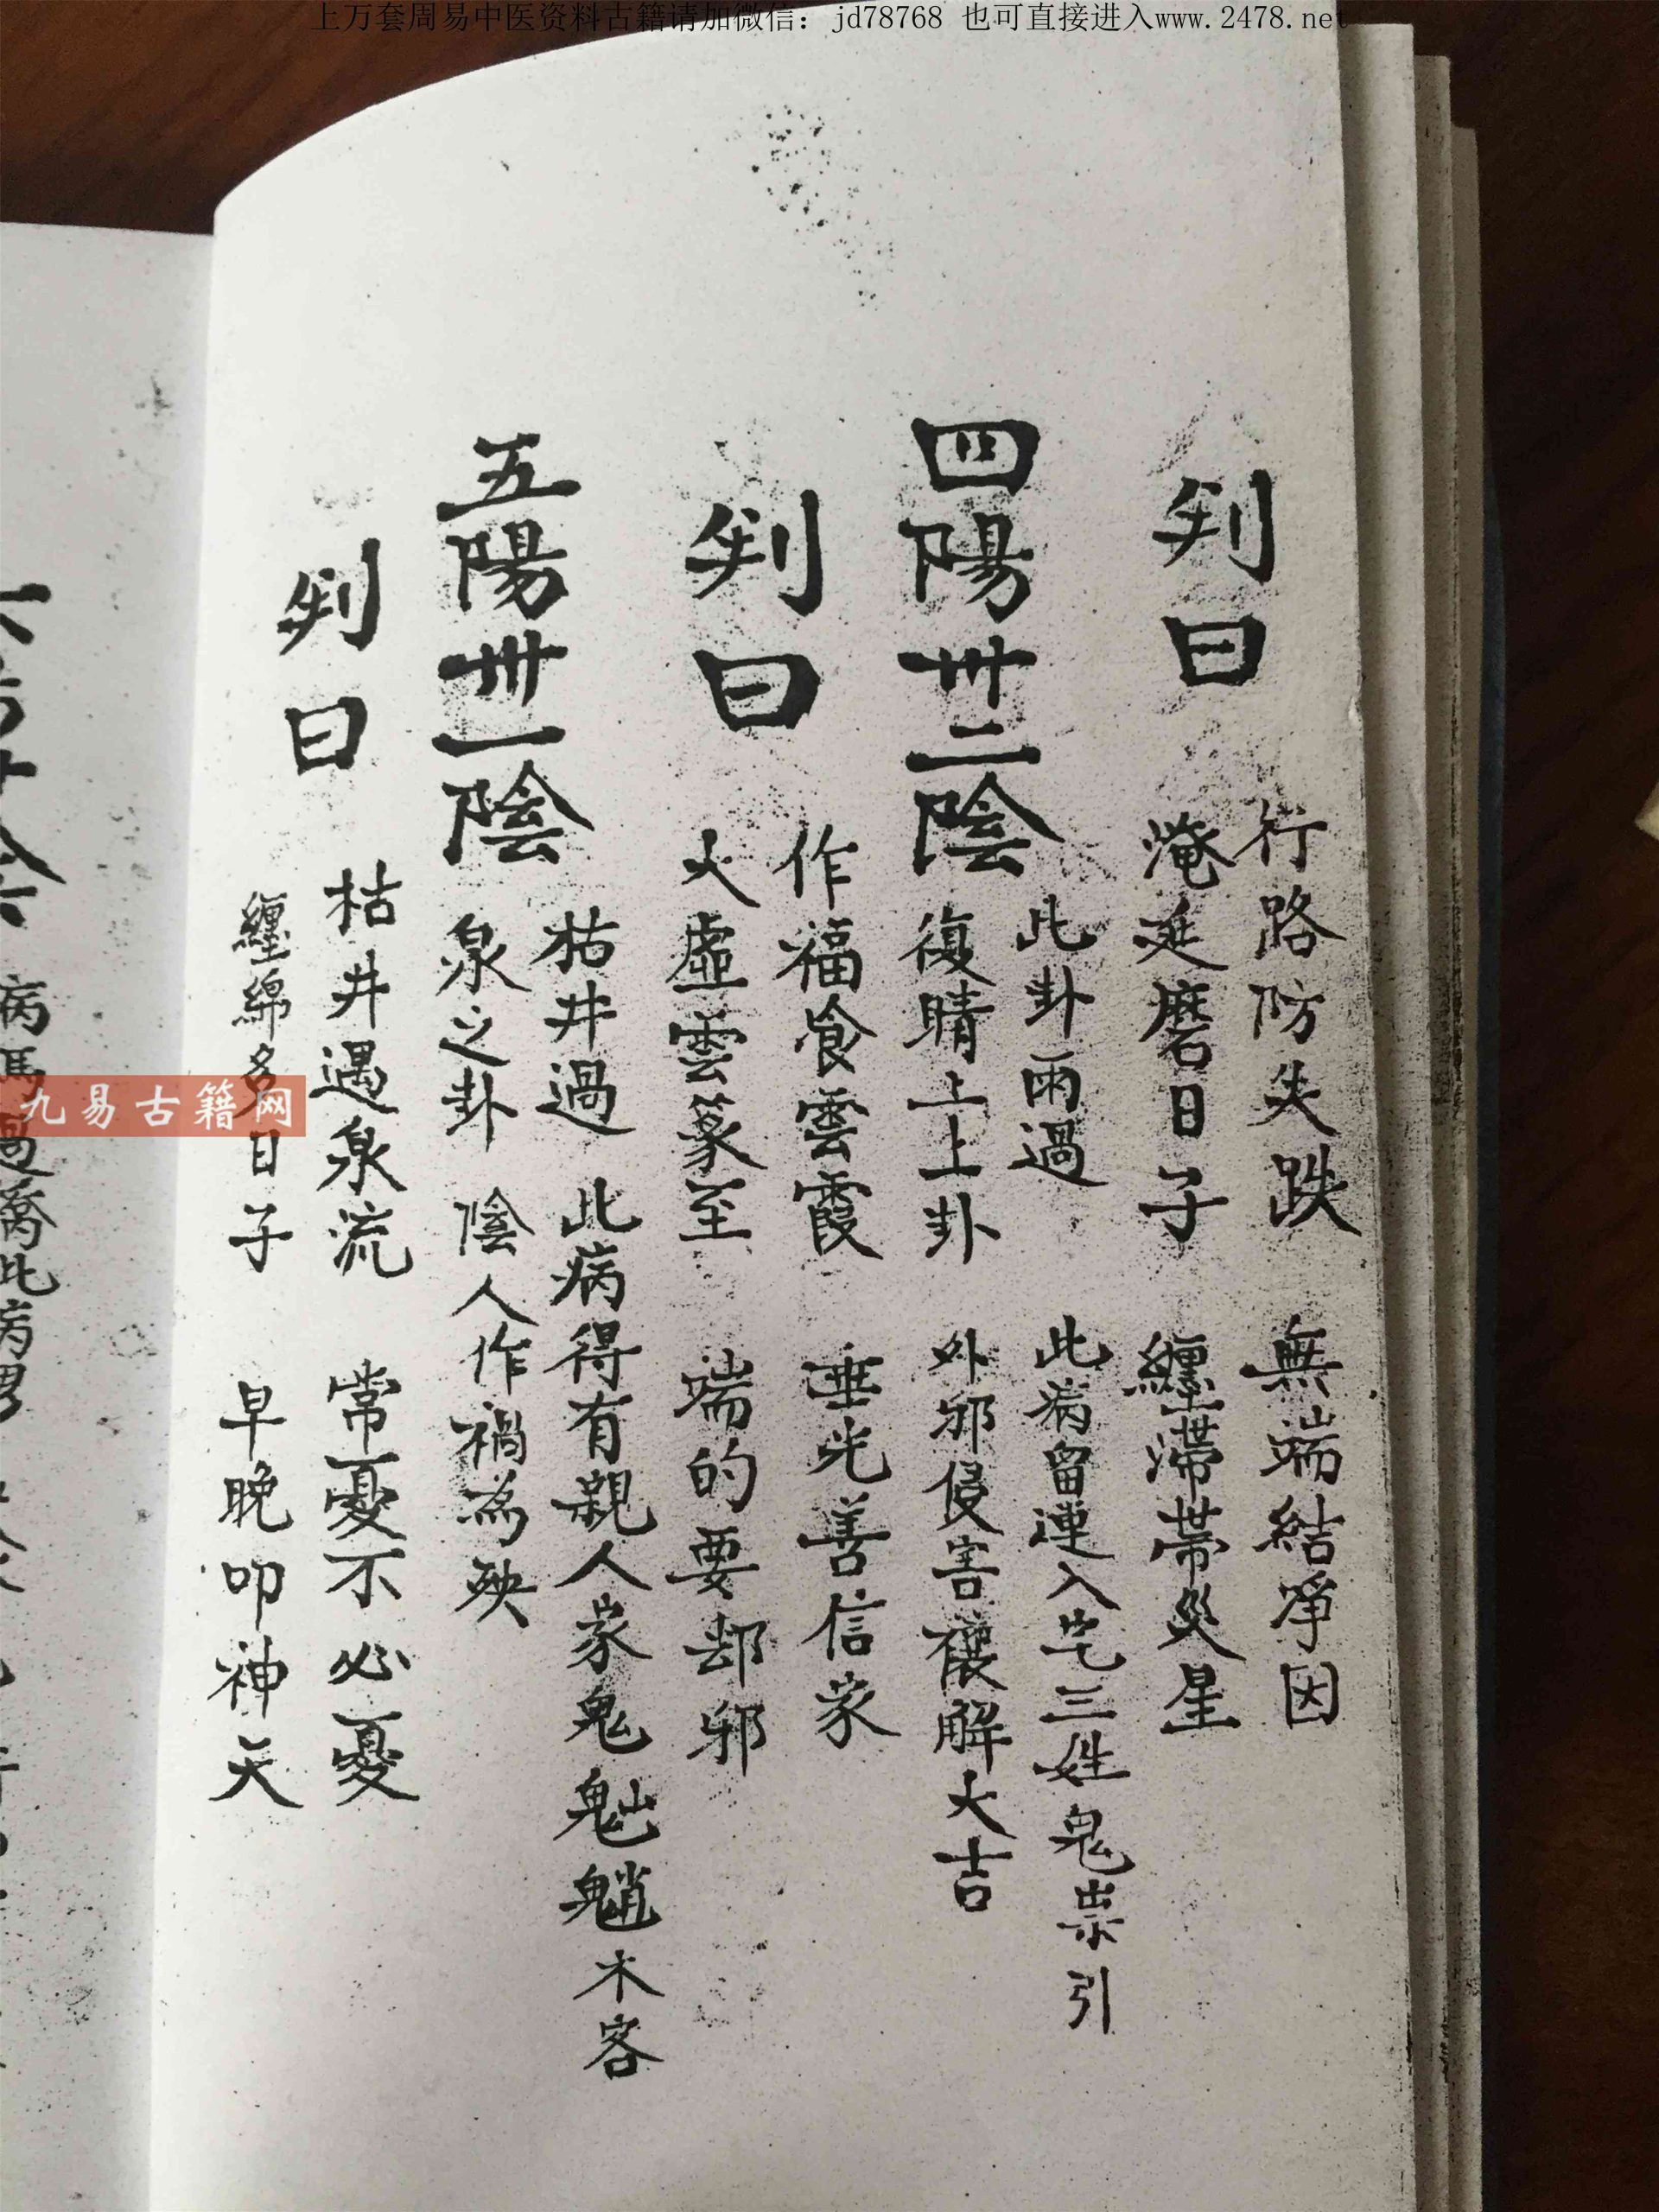 上万套周易中医资料古籍请加微信：jd78768 也可直接进入www.2478.net
判曰
行路防失跌 無端結淨因
淹延磨日子 纏滯帶災星
四陽卅二陰
此卦雨過 此病留連入宅三姓鬼祟引
復晴上上卦 外邪侵害禳解大吉
判曰
作福食雲霞 垂光善信家
火虛雲篆至 端的要却邪
五陽卅一陰
枯井過 此病得有親人家鬼魈魈木客
泉之卦 陰人作禍為殃
判曰
枯井遇泉流 常憂不必憂
纏綿多日子 早晚叩神天
九易古籍网
病馬過喬此病